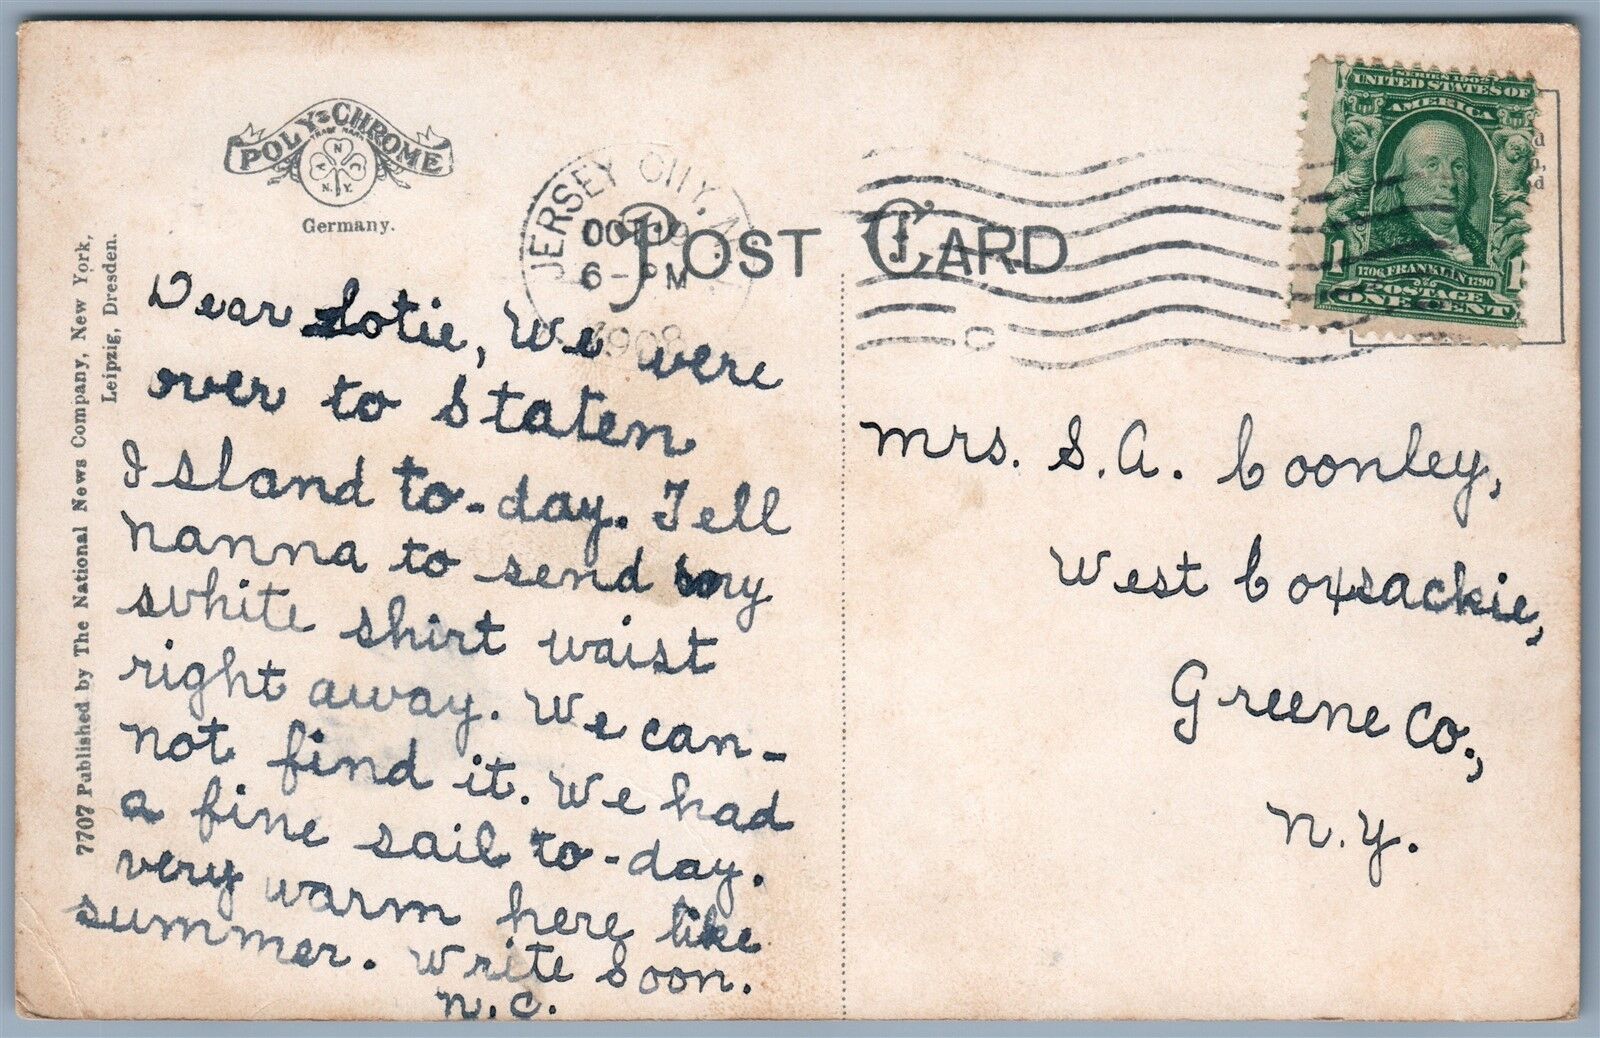 POLY-CHROME
TRADE MARK
N
A N C
N. Y.
Germany.
JERSEY CITY, N.
OCT 19
6 - PM
1908
POST CARD
SERIES 1902
UNITED STATES OF
AMERICA
1 1
1706 FRANKLIN 1790
POSTAGE
ONE CENT
7707 Published by The National News Company, New York,
Leipzig, Dresden.
Dear Lotie, We were
over to Staten
Island to-day. Tell
nanna to send my
white shirt waist
right away. We can-
not find it. We had
a fine sail to-day.
very warm here like
summer. Write soon.
N.C.
Mrs. S. A. Coonley,
West Coxsackie,
Greene Co.,
N.Y.